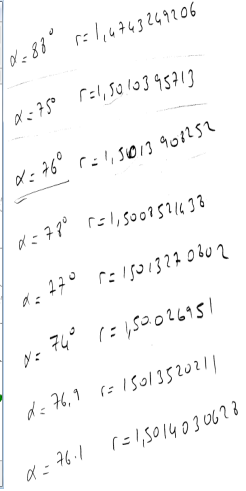 α=88° r=1,4743249206
α=75° r=1,5010395713
α=76° r=1,5013908252
α=78° r=1,5008521438
α=77° r=15013270802
α=74° r=1,50.026951
α=76,9 r=15013520211
α=76.1 r=1,5014030628